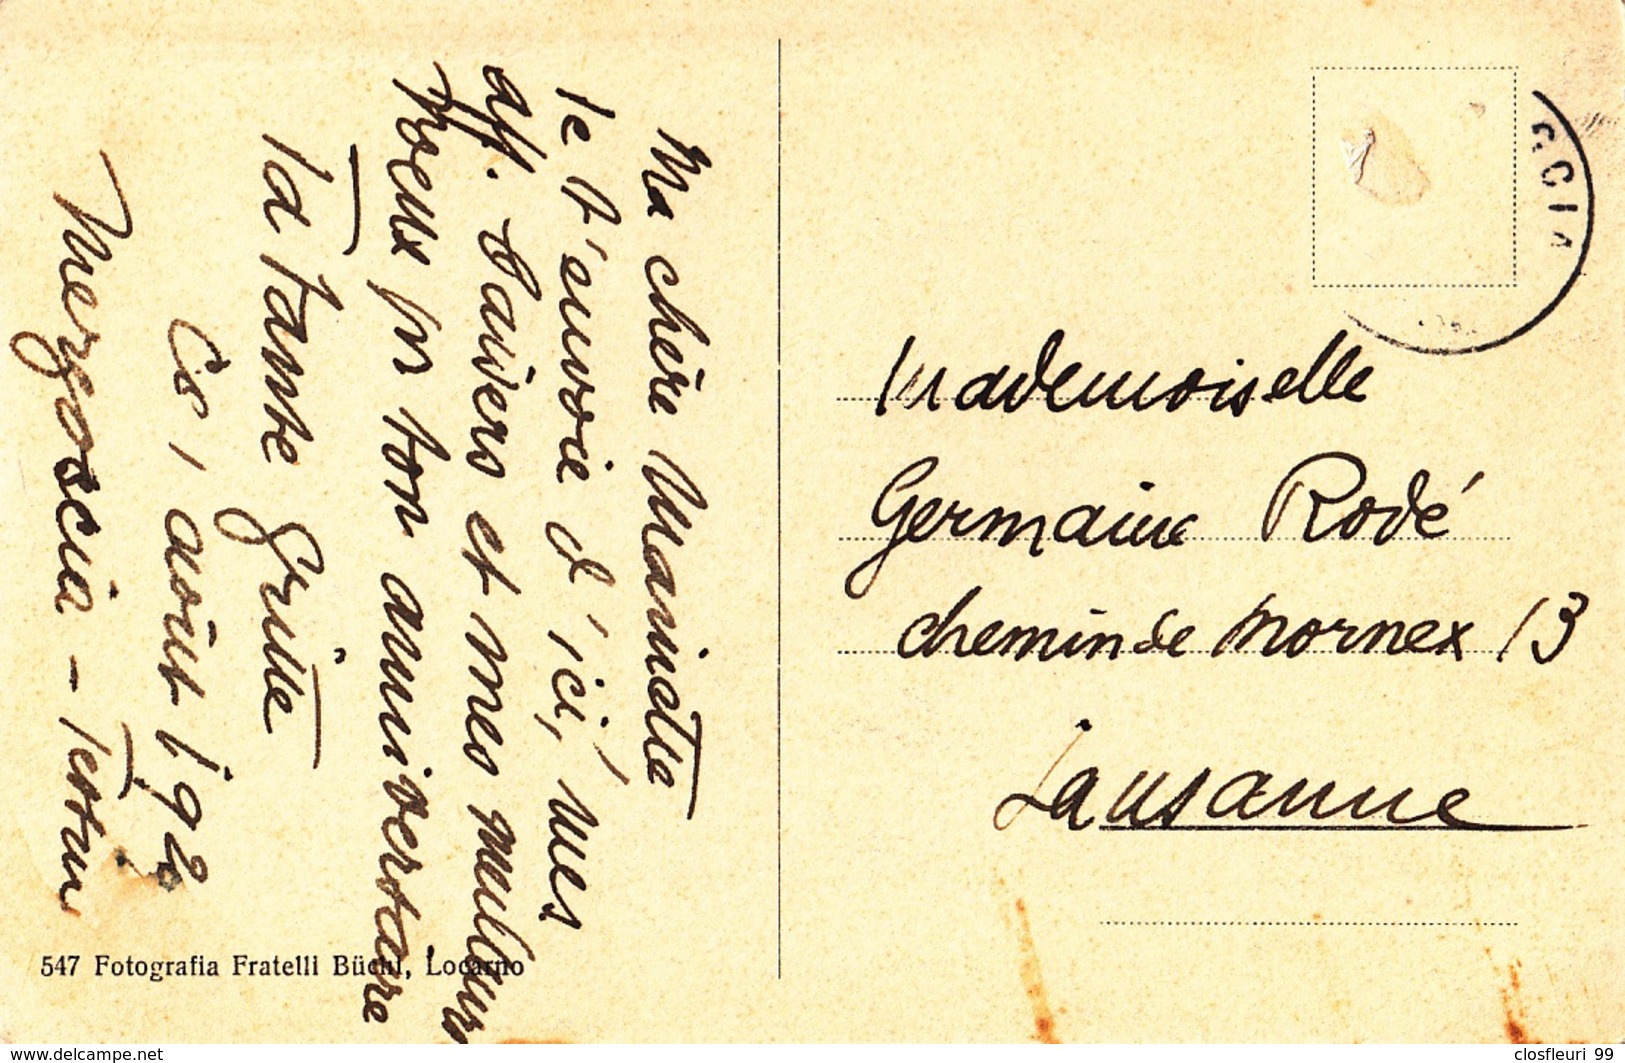 Ma chère Mainette
Je t'envoie d'ici, mes
aff. baisers et mes meilleurs
voeux pr ton anniversaire
Ta Tante Gritte
Ce, août 192
Mergoscia - Tessin
547 Fotografia Fratelli Büchi, Locarno
Mademoiselle
Germaine Rodé
chemin de Mornex 13
Lausanne
GCIA
www.delcampe.net
closfleuri 99